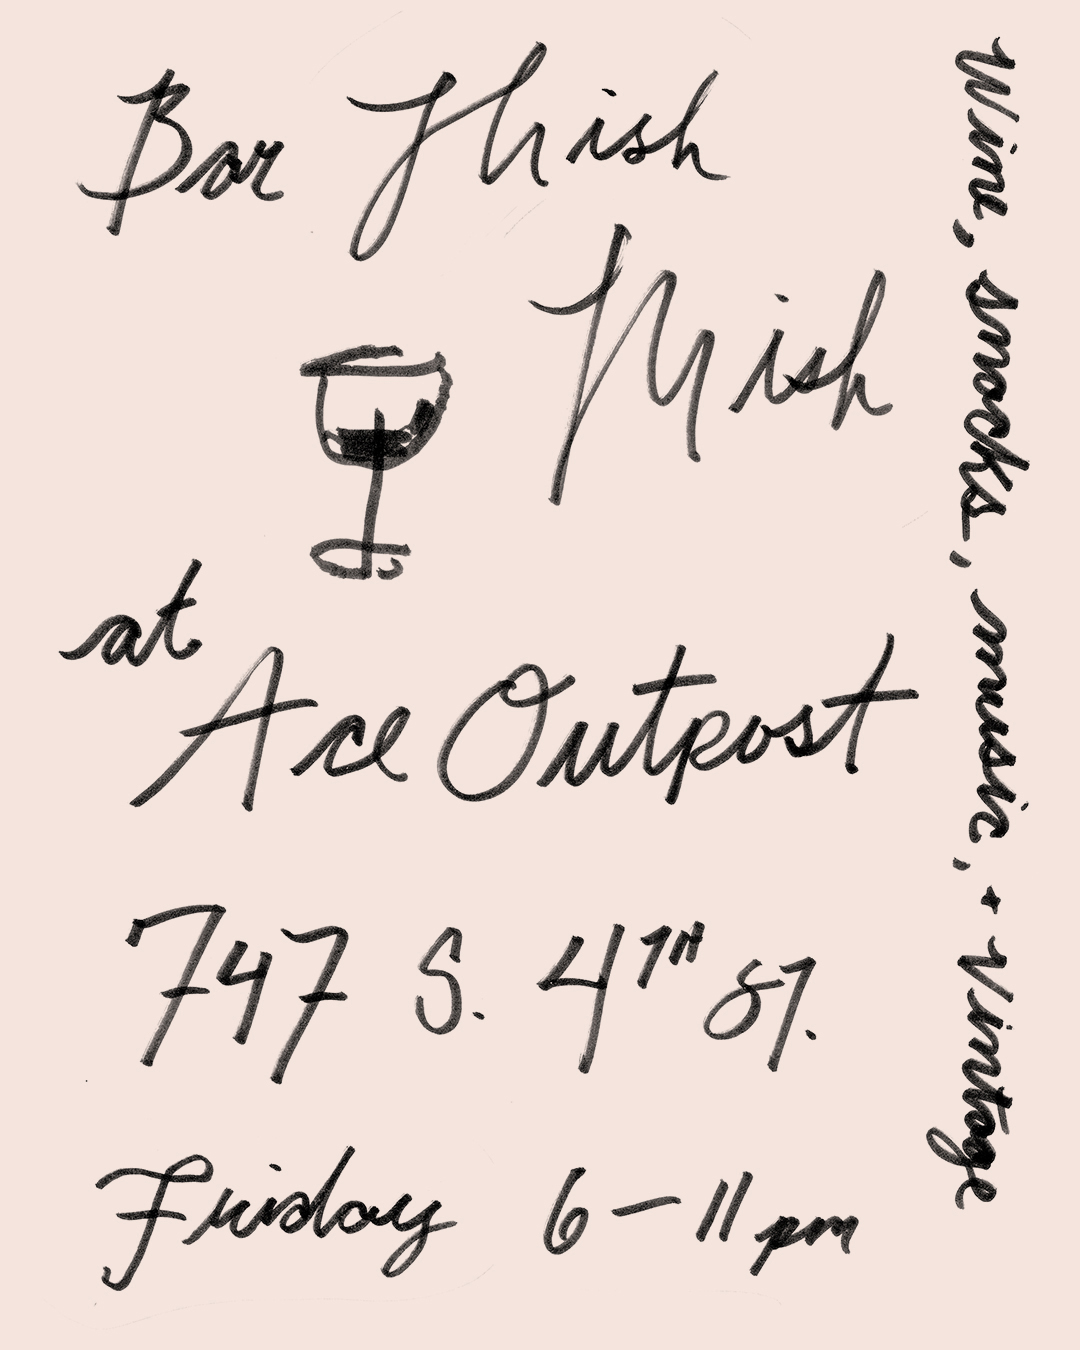 Bar Mish
Mish
at
Ace Outpost
747 S. 4TH ST.
Friday 6-11pm
Wine, snacks, music, + Vintage